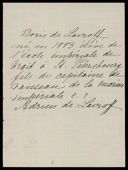 Boris de Lavroff
né en 1883 élève de
l'école impériale de
Droit à St. Pétersbourg
fils du capitaine de
Vaisseau de la marine
impériale
Adrien de Lavroff